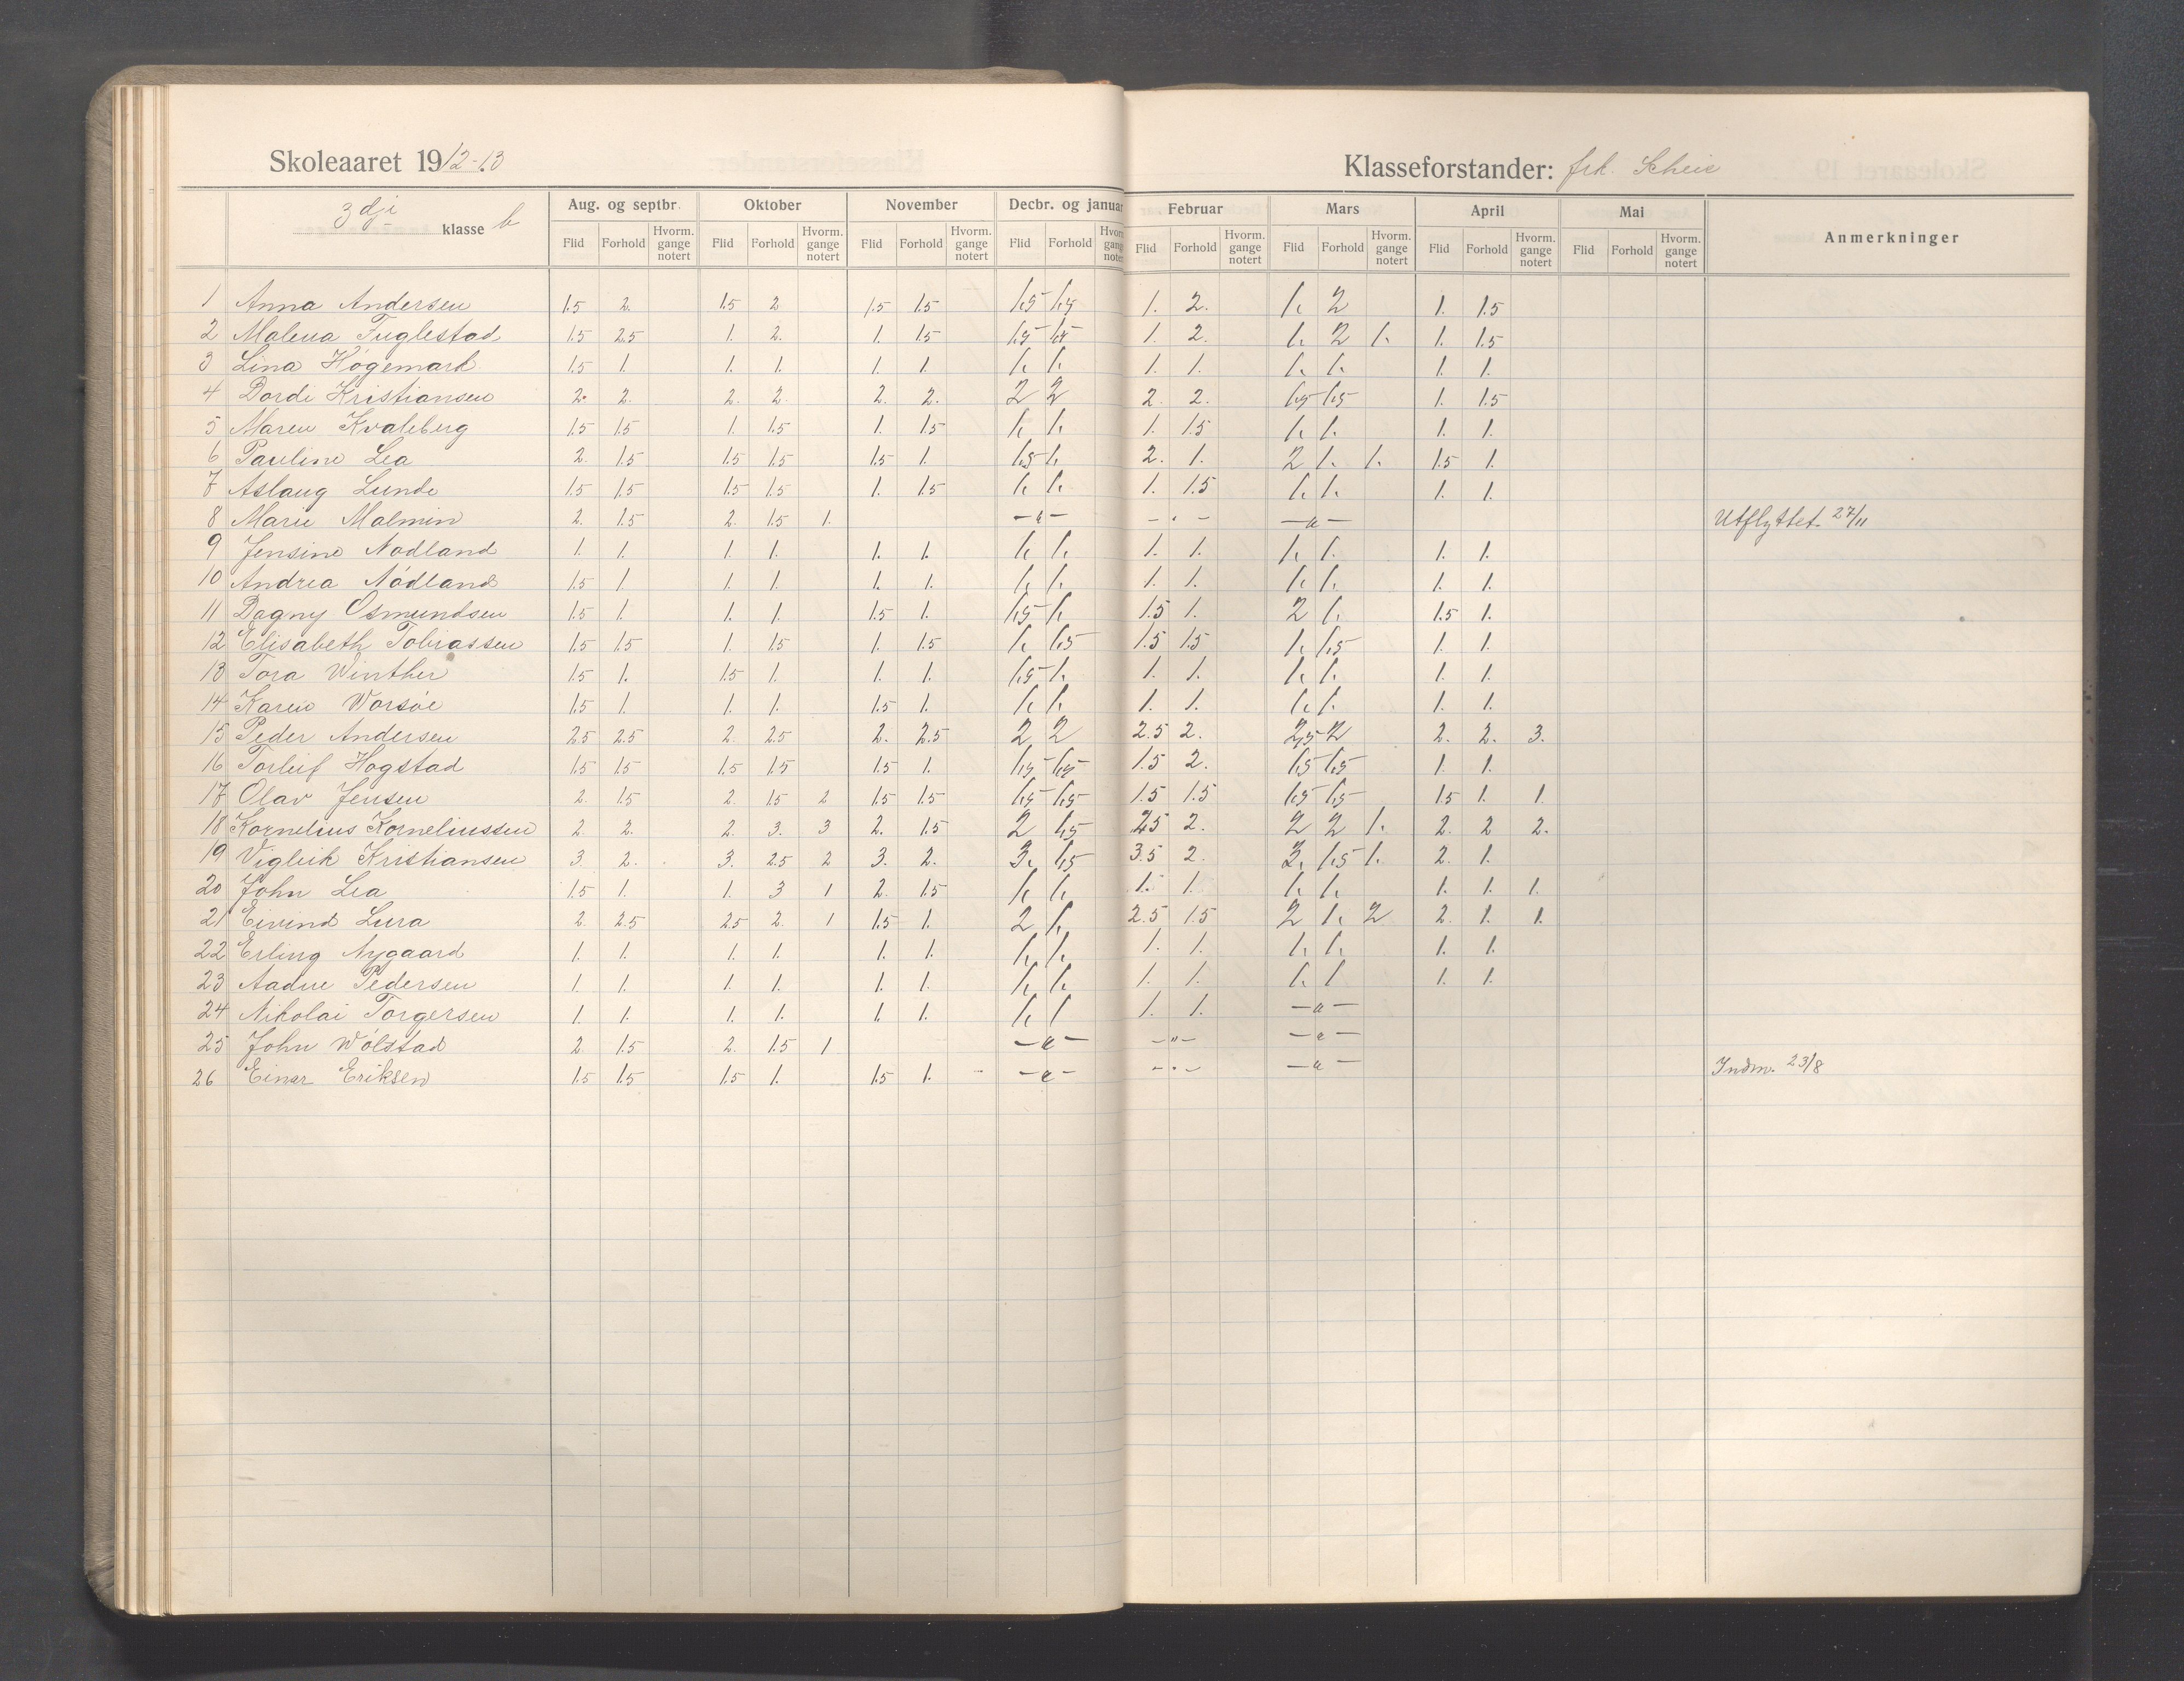 Skoleaaret 1912-13
Klasseforstander: frk. Scheie
3dje klasse b
Aug. og septbr. Oktober November Decbr. og januar Februar Mars April Mai Anmerkninger
Flid Forhold Hvorm. gange notert Flid Forhold Hvorm. gange notert Flid Forhold Hvorm. gange notert Flid Forhold Hvorm. gange notert Flid Forhold Hvorm. gange notert Flid Forhold Hvorm. gange notert Flid Forhold Hvorm. gange notert Flid Forhold Hvorm. gange notert
1 Anna Andersen 1.5 2. 1.5 2 1.5 1.5 1,5 1,5 1. 2. 1. 2 1. 1.5
2 Malena Fuglestad 1.5 2.5 1. 2. 1. 1.5 1,5 1,5 1. 2. 1. 2 1. 1. 1.5
3 Lina Høgemark 1.5 1. 1. 1. 1. 1. 1. 1. 1. 1. 1. 1. 1. 1.
4 Dordi Kristiansen 2. 2. 2. 2. 2. 2. 2 2 2. 2. 1,5 1,5 1. 1.5
5 Maren Kvaleberg 1.5 1.5 1. 1.5 1. 1.5 1. 1. 1. 1.5 1. 1. 1. 1.
6 Pauline Lea 2. 1.5 1.5 1.5 1.5 1. 1,5 1. 2. 1. 2 1. 1. 1.5 1.
7 Aslaug Lunde 1.5 1.5 1.5 1.5 1. 1.5 1. 1. 1. 1.5 1. 1. 1. 1.
8 Marie Malmin 2. 1.5 2. 1.5 1. — " — — " — — " — Utflyttet 27/11
9 Jensine Nodland 1. 1. 1. 1. 1. 1. 1. 1. 1. 1. 1. 1. 1. 1.
10 Andrea Nødland 1.5 1. 1. 1. 1. 1. 1. 1. 1. 1. 1. 1. 1. 1.
11 Dagny Osmundsen 1.5 1. 1. 1. 1.5 1. 1,5 1. 1.5 1. 2 1. 1.5 1.
12 Elisabeth Tobiassen 1.5 1.5 1. 1.5 1. 1.5 1. 1,5 1.5 1.5 1. 1,5 1. 1.
13 Tora Winther 1.5 1. 1.5 1. 1. 1. 1,5 1. 1. 1. 1. 1. 1. 1.
14 Karen Worsøe 1.5 1. 1. 1. 1.5 1. 1. 1. 1. 1. 1. 1. 1. 1.
15 Peder Andersen 2.5 2.5 2. 2.5 2. 2.5 2 2 2.5 2. 2,5 2 2. 2. 3.
16 Torleif Hogstad 1.5 1.5 1.5 1.5 1.5 1. 1,5 1,5 1.5 2. 1,5 1,5 1. 1.
17 Olav Jensen 2. 1.5 2. 1.5 2 1.5 1.5 1,5 1,5 1.5 1.5 1,5 1,5 1.5 1. 1.
18 Kornelius Korneliussen 2. 2. 2. 3. 3 2. 1.5 2 1,5 2.5 2. 2 2 1. 2. 2 2.
19 Vigleik Kristiansen 3. 2. 3. 2.5 2 3. 2. 3. 1,5 3.5 2. 3. 1,5 1. 2. 1.
20 John Lea 1.5 1. 1. 3 1 2. 1.5 1. 1. 1. 1. 1. 1. 1. 1. 1.
21 Eivind Lura 2. 2.5 2.5 2. 1 1.5 1. 2 1. 2.5 1.5 2 1. 2 2. 1. 1.
22 Erling Nygaard 1. 1. 1. 1. 1. 1. 1. 1. 1. 1. 1. 1. 1. 1.
23 Aadne Pedersen 1. 1. 1. 1. 1. 1. 1. 1. 1. 1. 1. 1 1. 1.
24 Nikolai Torgersen 1. 1. 1. 1. 1. 1. 1. 1 1. 1. — " —
25 John Wølstad 2. 1.5 2. 1.5 1 — " — — " — — " —
26 Einar Eriksen 1.5 1.5 1.5 1. 1.5 1. — " — — " — — " — Indm. 23/8